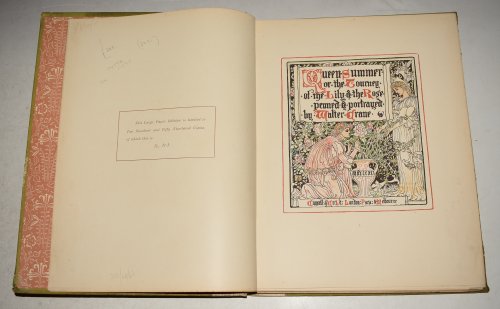 This Large Paper Edition is limited to
Two Hundred and Fifty Numbered Copies,
of which this is
No.
Queen Summer
or the Tourney
of the Lily & the Rose
penned & portrayed
by Walter Crane
MDCCCXCI
Cassell & Co. Ld: London: Paris: & Melbourne